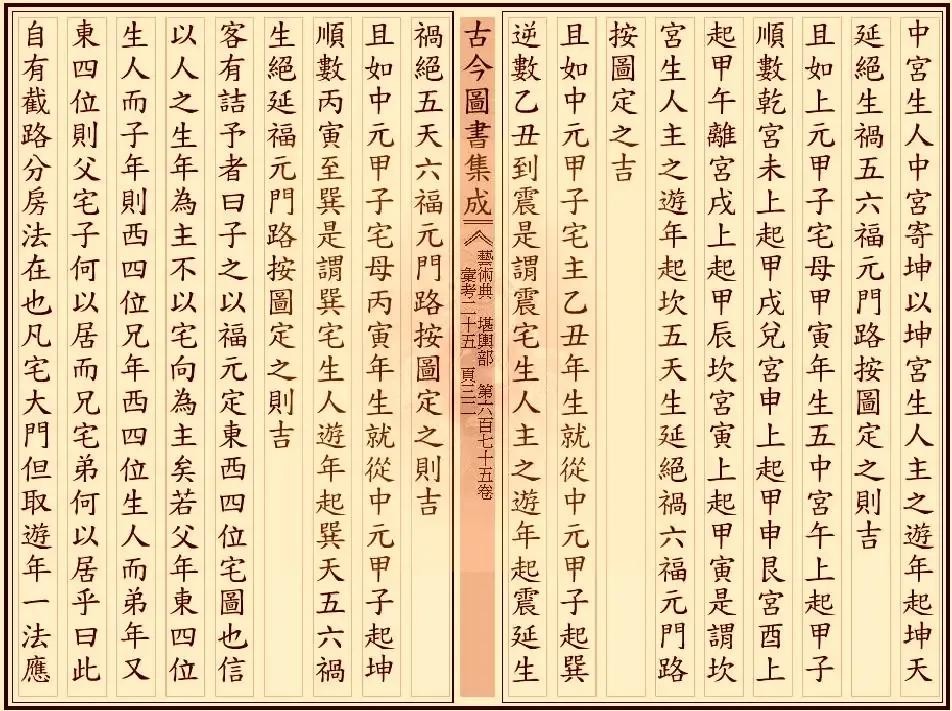 中宮生人中宮寄坤以坤宮生人主之遊年起坤天
延絕生禍五六福元門路按圖定之則吉
且如上元甲子宅母甲寅年生五中宮午上起甲子
順數乾宮未上起甲戌兌宮申上起甲申艮宮酉上
起甲午離宮戌上起甲辰坎宮寅上起甲寅是謂坎
宮生人主之遊年起坎五天生延絕禍六福元門路
按圖定之吉
且如中元甲子宅主乙丑年生就從中元甲子起巽
逆數乙丑到震是謂震宅生人主之遊年起震延生
古今圖書集成
藝術典 堪輿部 第六百七十五卷
彙考二十五 頁三二
禍絕五天六福元門路按圖定之則吉
且如中元甲子宅母丙寅年生就從中元甲子起坤
順數丙寅至巽是謂巽宅生人遊年起巽天五六禍
生絕延福元門路按圖定之則吉
客有詰予者曰子之以福元定東西四位宅圖也信
以人之生年為主不以宅向為主矣若父年東四位
生人而子年則西四位兄年西四位生人而弟年又
東四位則父宅子何以居而兄宅弟何以居乎曰此
自有截路分房法在也凡宅大門但取遊年一法應